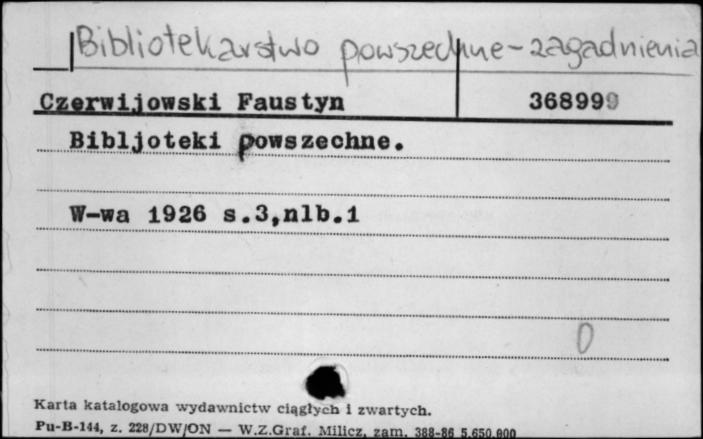 Bibliotekarstwo powszechne - zagadnienia
Czerwijowski Faustyn 368999
Bibljoteki powszechne.
W-wa 1926 s.3,nlb.1
0
Karta katalogowa wydawnictw ciągłych i zwartych.
Pu-B-144, z. 228/DW/ON — W.Z.Graf. Milicz, zam. 388-86 5.650.000